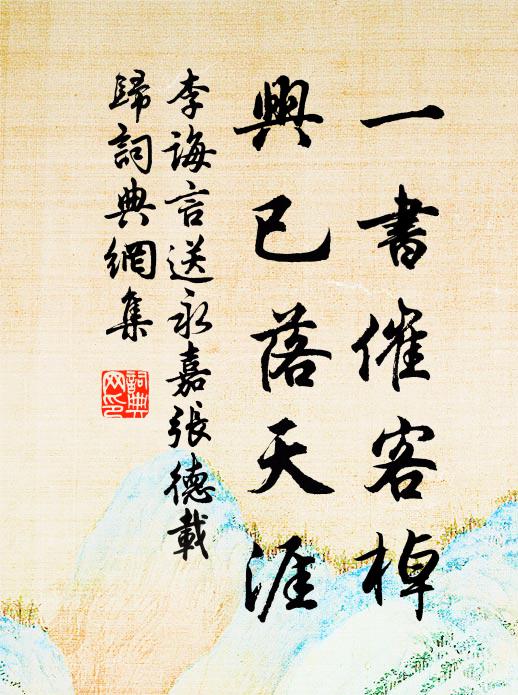 一書催客棹
興已落天涯
李誨言送永嘉張德載
歸詞典網集
詞典網印